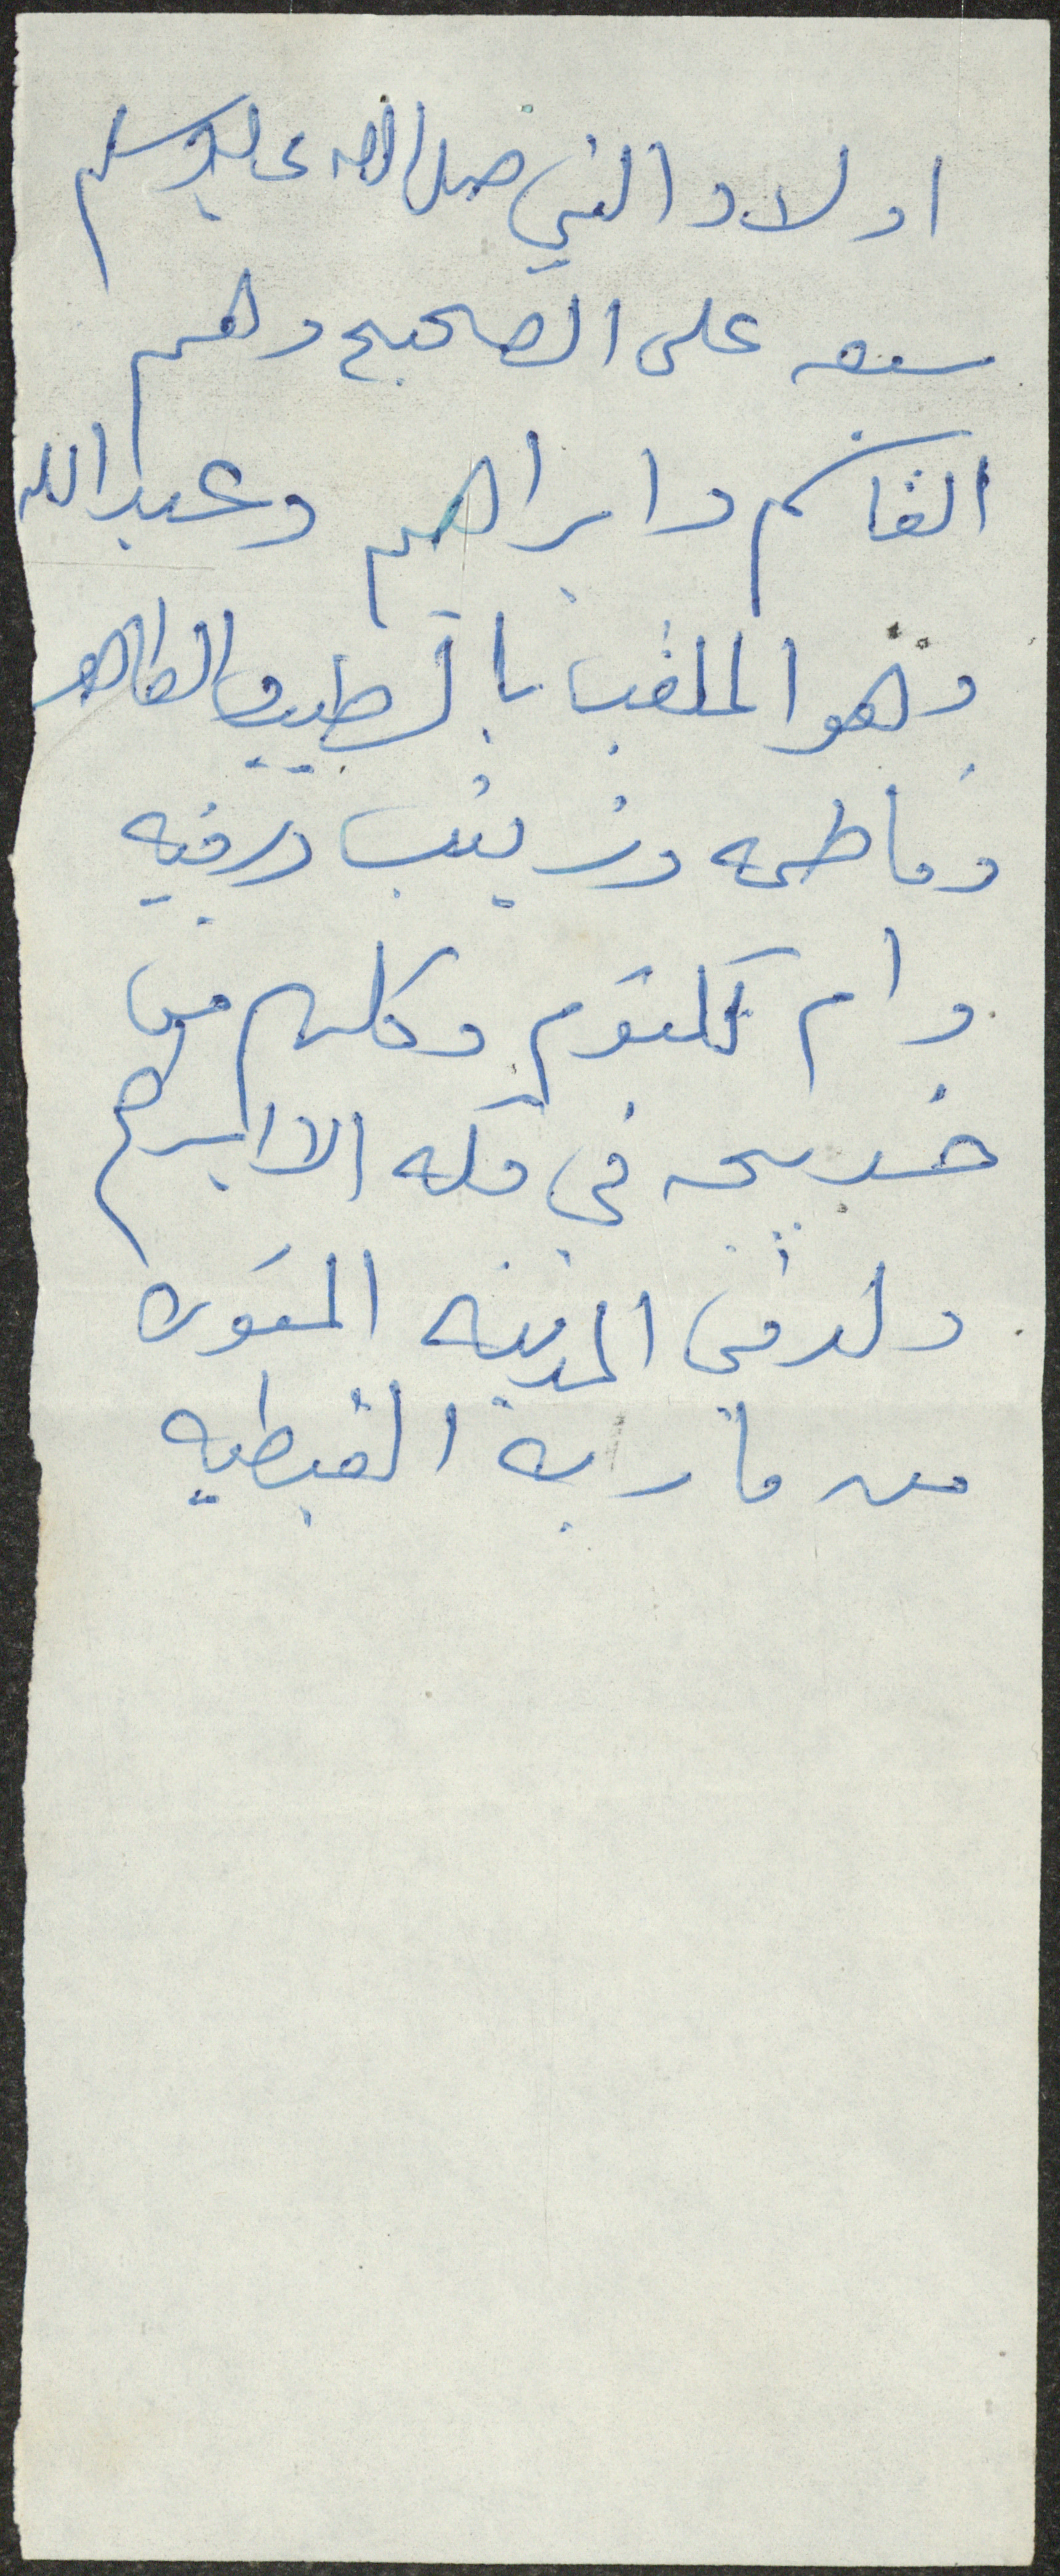 اولاد النبي صلى الله عليه وسلم
سبعه على الصحيح وهم
القاسم وابراهيم وعبد الله
وهو الملقب بالطيب والطاهر
وفاطمه وزينب ورقيه
وام كلثوم وكلهم من
خديجه في مكه الا ابراهيم
ولد في المدينه المنوره
من ماريه القبطيه